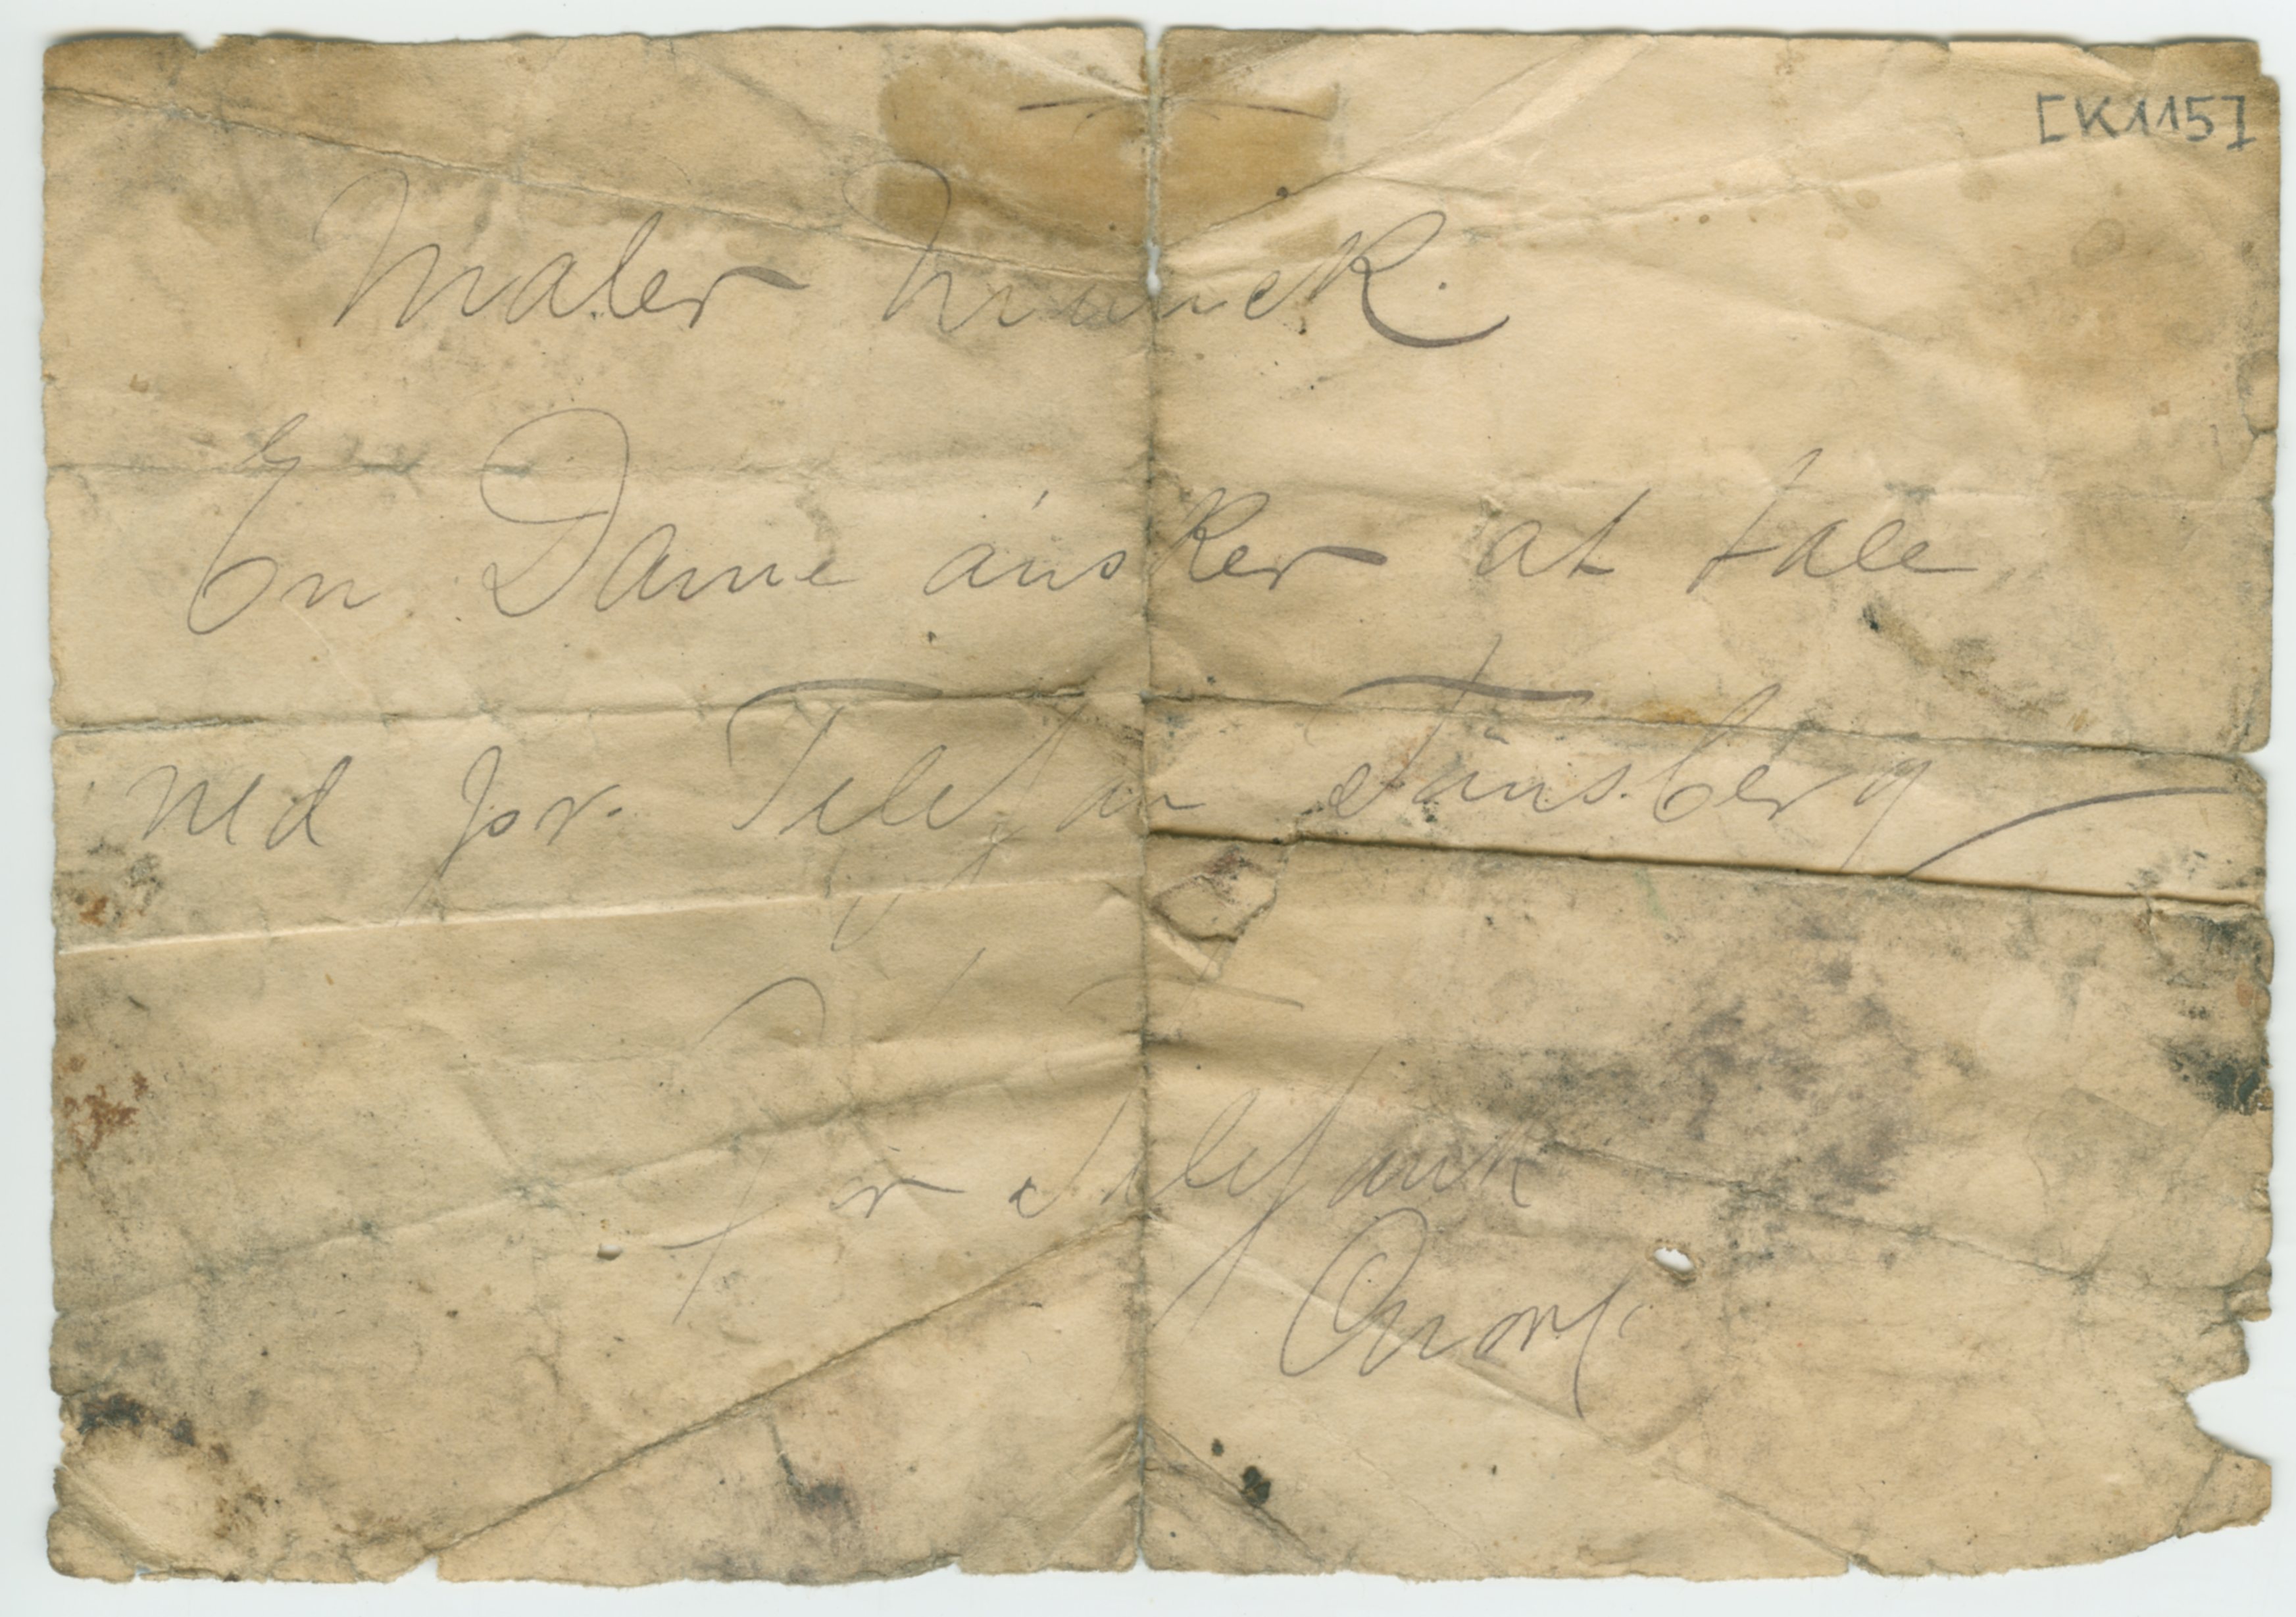 [K115]
Maler Munck.
En Dame ønsker at tale
med pr. Telefon Tønsberg
for Telefonk